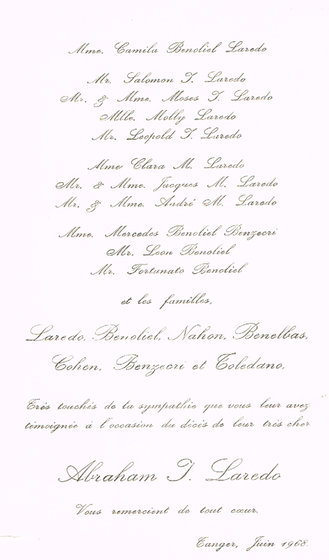 Mme. Camila Benoliel Laredo
Mr. Salomon I. Laredo
Mr. & Mme. Moses I. Laredo
Mlle. Molly Laredo
Mr. Leopold I. Laredo
Mme Clara M. Laredo
Mr. & Mme. Jacques M. Laredo
Mr. & Mme. André M. Laredo
Mme. Mercedes Benoliel Benzecri
Mr. Leon Benoliel
Mr. Fortunato Benoliel
et les familles,
Laredo, Benoliel, Nahon, Benelbas,
Cohen, Benzecri et Toledano,
Très touchés de la sympathie que vous leur avez
témoignée à l'occasion du décès de leur très cher
Abraham I. Laredo
Vous remercient de tout cœur.
Tanger, Juin 1968.